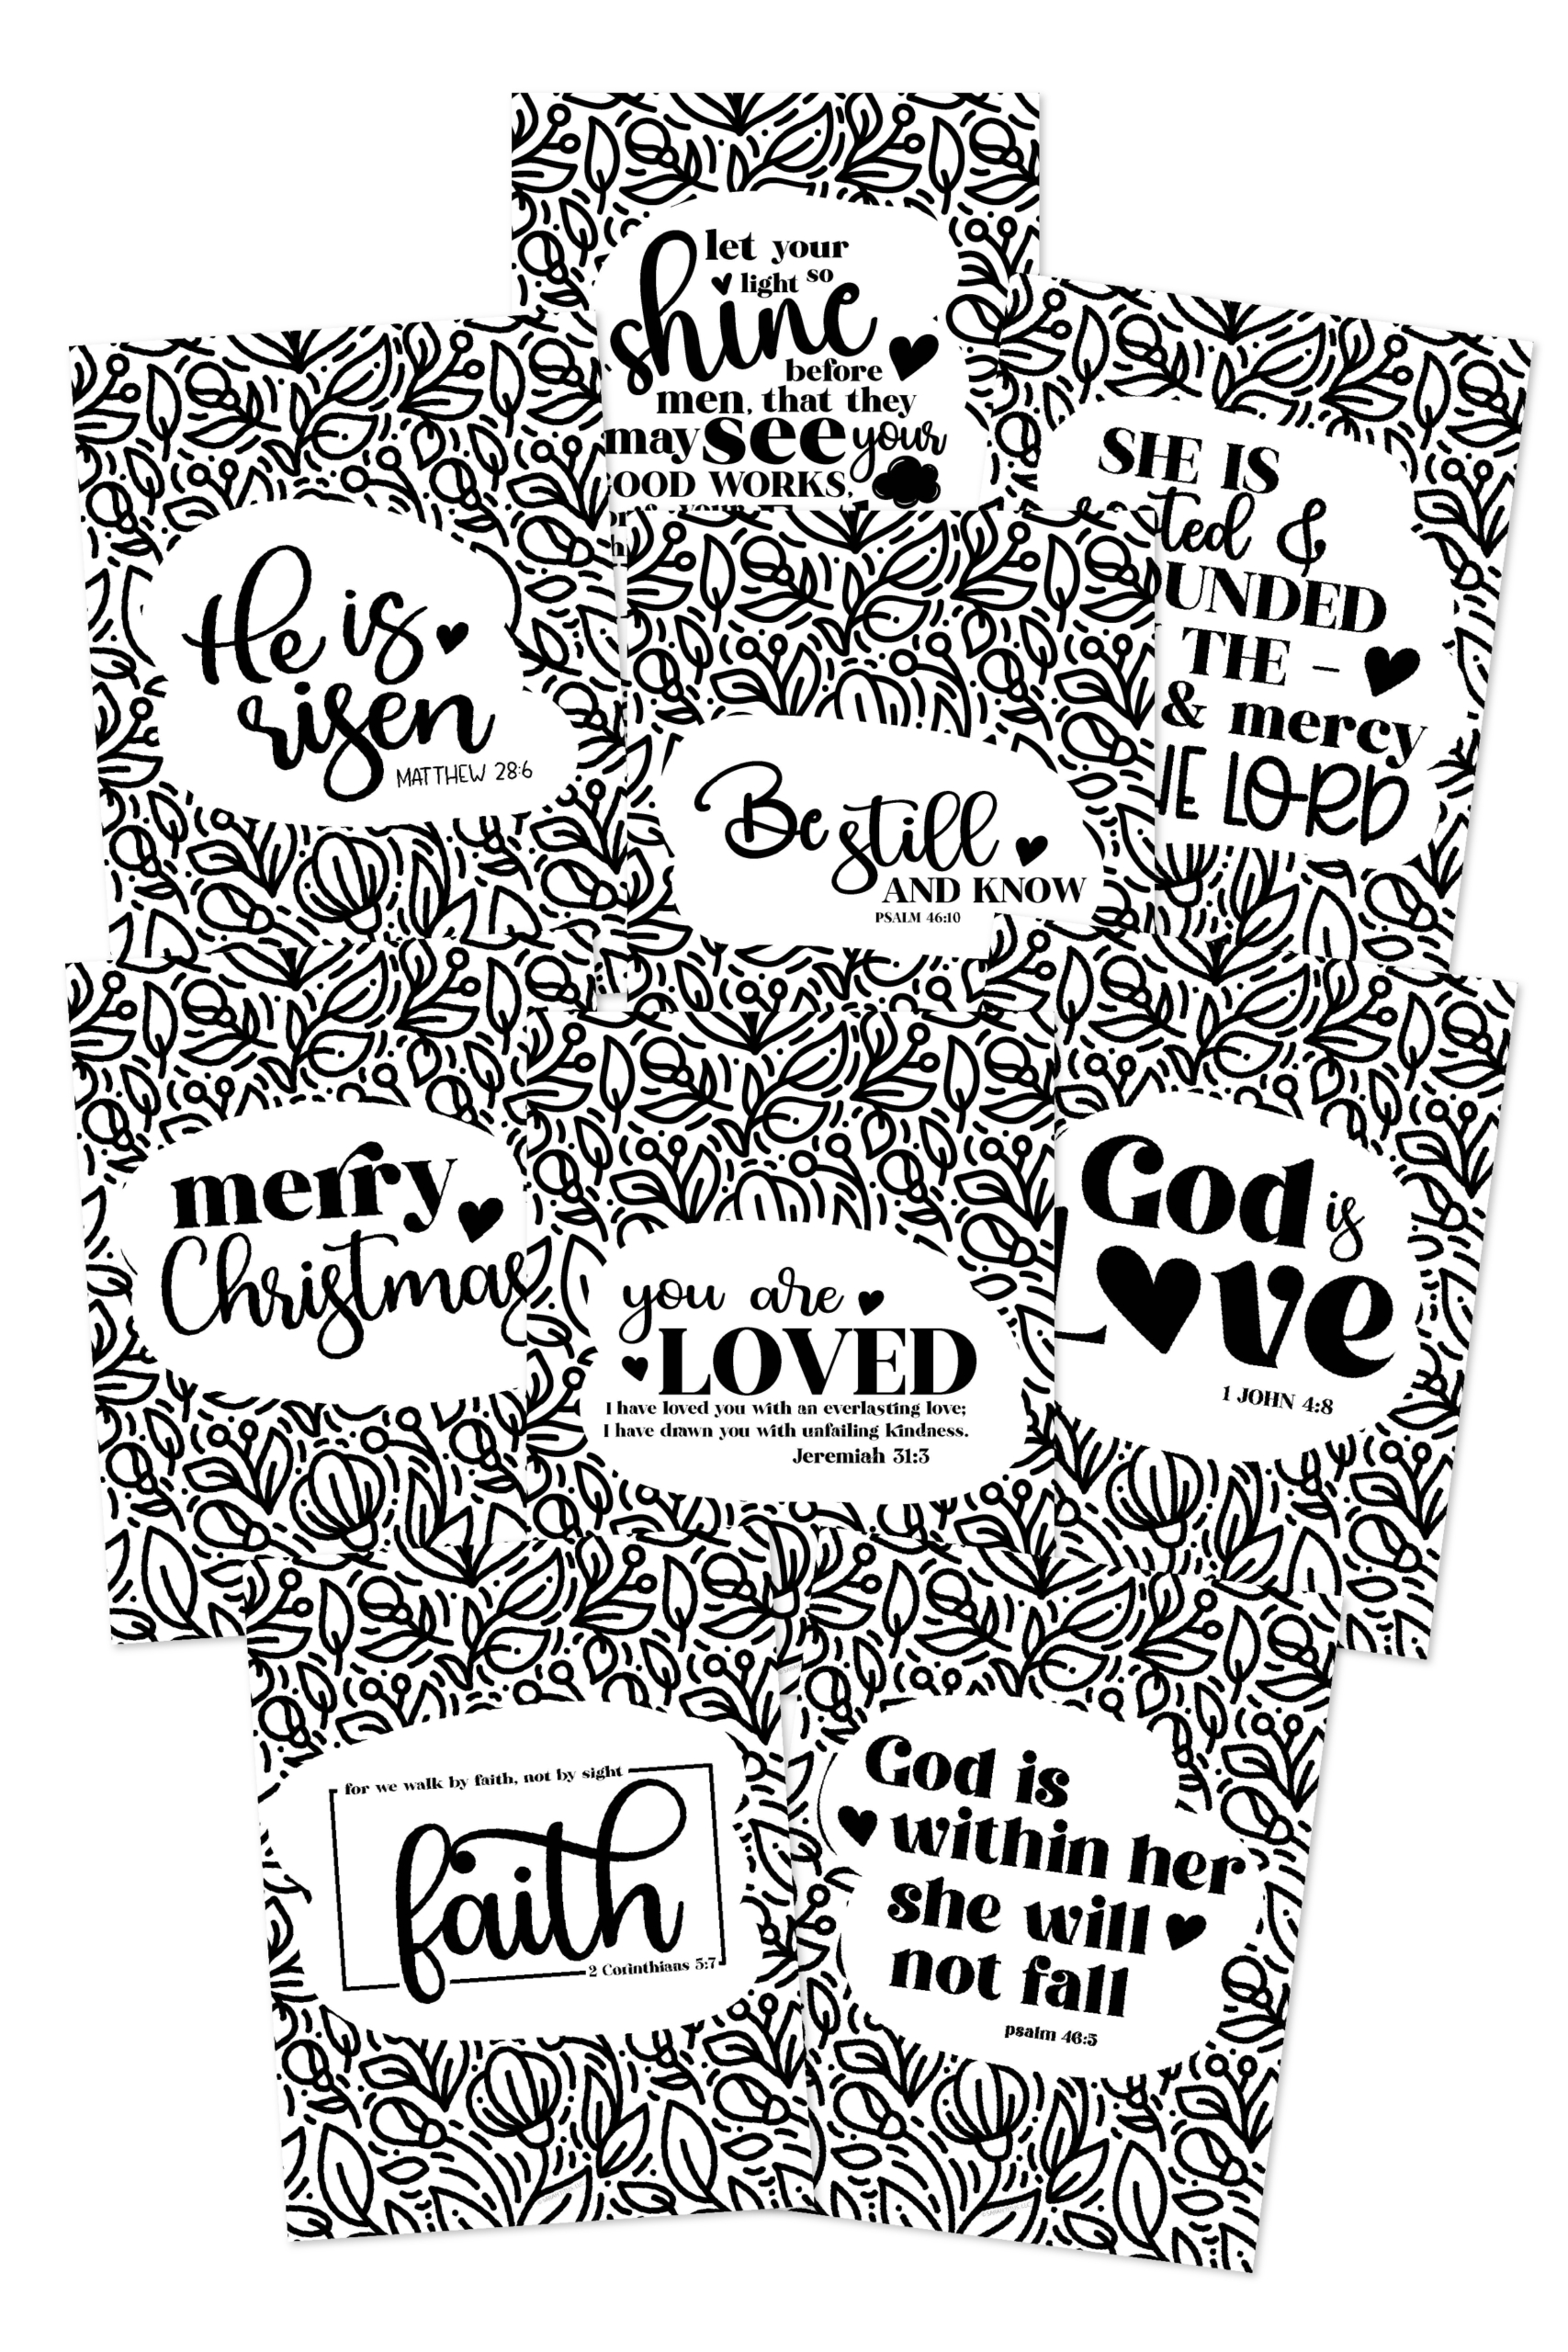 let your
light so
shine
before
men, that they
may see your
OOD WORKS,
SHE IS
&
UNDED
THE -
& mercy
LORD
He is
risen
MATTHEW 28:6
Be still
AND KNOW
PSALM 46:10
merry
Christmas
you are
LOVED
I have loved you with an everlasting love;
I have drawn you with unfailing kindness.
Jeremiah 31:3
God is
Love
1 JOHN 4:8
for we walk by faith, not by sight
faith
2 Corinthians 5:7
God is
within her
she will
not fall
psalm 46:5